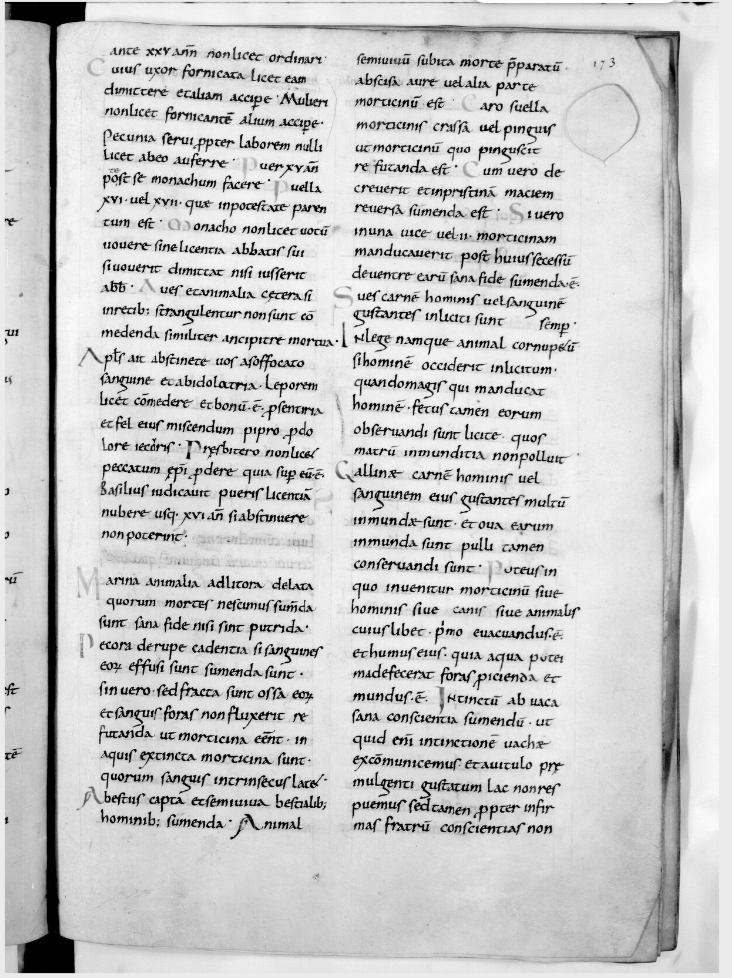 173
ante xxv anñ non licet ordinari·
Cuius uxor fornicata licet eam
dimittere et aliam accipe· Mulieri
non licet fornicantē alium accipe·
Pecunia serui ꝓpter laborem nulli
licet abeo auferre· Puer xv añ
post se monachum facere· Puella
xvi· uel xvii· quæ inpotestate paren
tum est· Monacho non licet uotū
uouere sine licentia abbatis sui
si uouerit dimittat nisi iusserit
abb̄· Aues et animalia cętera si
in retib; strangulentur non sunt cō
medenda similiter ancipitre mortua·
Apl̄s ait abstinete uos asoffocato
sanguine et abidolatria· Leporem
licet cōmedere et bonū·ē· ꝓsentiria
et fel eius miscendum pipro ꝓdo
lore iecoris· Pręsbitero non licet
peccatum epī ꝓdere quia sup̄ eū·ē·
Basilius iudicauit pueris licentiā
nubere usq· xvi añ si abstinere
non poterint·
Marina animalia adlitora delata
quorum mortes nescimus sum̄da
sunt sana fide nisi sint putrida·
Pecora derupe cadentia si sanguines
eoꝝ effusi sunt sumenda sunt·
sin uero· sed fracta sunt ossa eoꝝ
et sanguis foras non fluxerit re
futanda ut morticina eēnt· in
aquis extincta morticina sunt·
quorum sanguis intrinsecus late·
Abestiis capta et semiuiua bestialib;
hominib; sumenda· Animal
semiuiuū subita morte p̄paratū·
abscisa aure uel alia parte
morticinū est· Caro suella
morticinis crassa uel pinguis
ut morticinū quo pinguscit
refutanda est· Cum uero de
creuerit et inpristinā maciem
reuersa sumenda est· Si uero
in una uice uel ii· morticinam
manducauerit post huius secessū
deuentre earū sana fide sumenda·ē·
Sues carnē hominis uel sanguinē
gustantes inliciti sunt semp̄·
In lege namque animal cornupetū
si hominē occiderit inlicitum·
quando magis qui manducat
hominē· fetus tamen eorum
obseruandi sunt licite· quos
matrū inmunditia non polluit·
Gallinæ carnē hominis uel
sanguinem eius gustantes multū
inmundæ sunt· et oua earum
inmunda sunt pulli tamen
conseruandi sunt· Puteus in
quo inuenitur morticinū siue
hominis siue canis siue animalis
cuius libet· p̍mo euacuandus·ē·
et humus eius· quia aqua putei
madefecerat foras ꝓicienda et
mundus·ē· Intinctū ab uaca
sana conscientia sumendū· ut
quid enī intinctionē uachæ
excōmunicemus· et a uitulo pre
mulgenti gustatum lac non res
puemus sed tamen ꝓpter infir
mas fratrū conscientias non